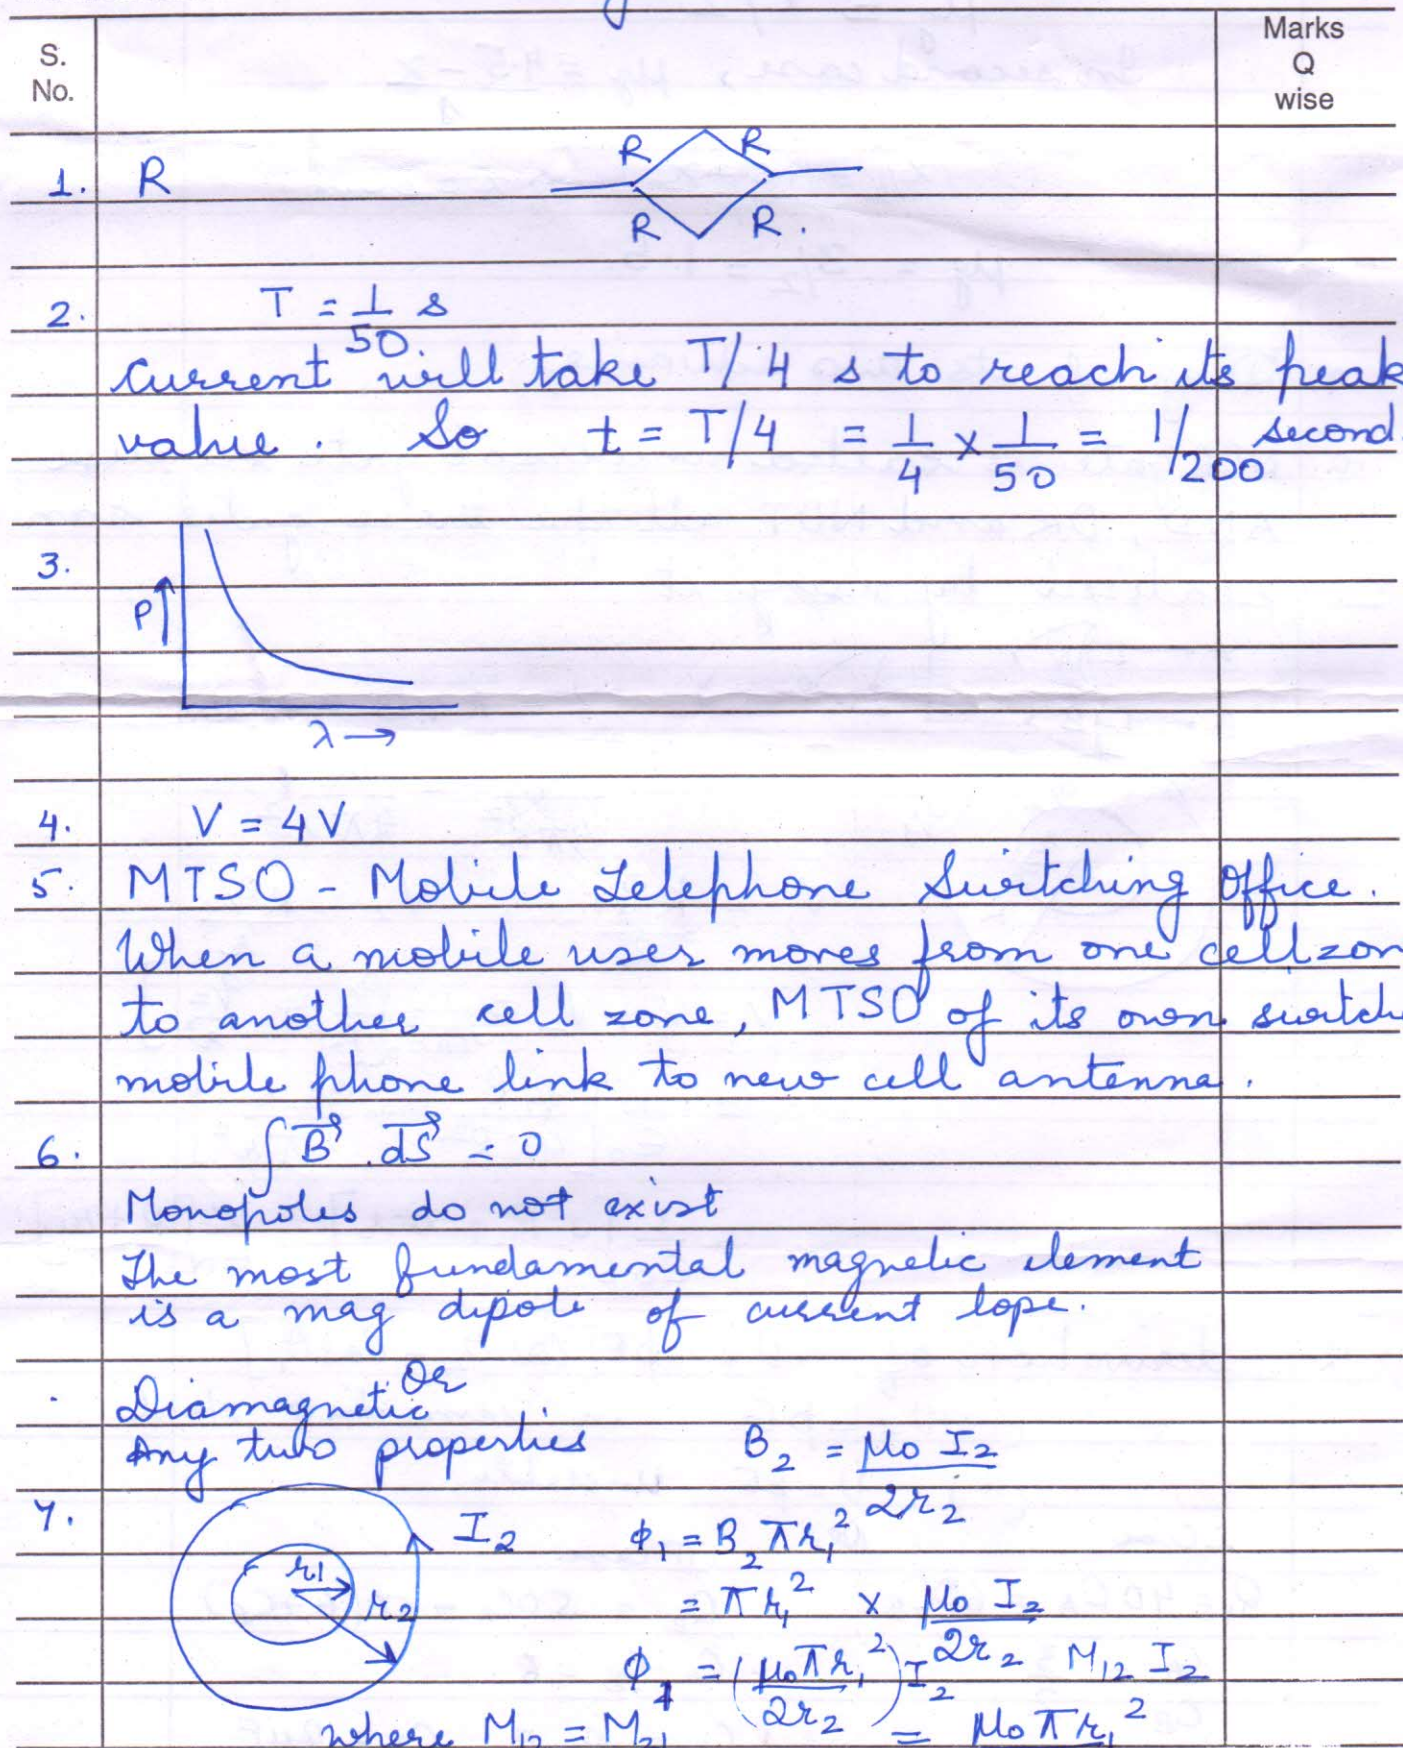 S. No.
Marks Q wise
1. R
R R
R R.
2. T = 1/50 s
current will take T/4 s to reach its peak
value. So t = T/4 = 1/4 × 1/50 = 1/200 second.
3.
P↑
λ→
4. V = 4V
5. MTSO - Mobile Telephone Switching Office.
When a mobile user moves from one cell zon
to another cell zone, MTSO of its own switch
mobile phone link to new cell antenna.
6. ∫B⃗ . dS⃗ = 0
Monopoles do not exist
The most fundamental magnetic element
is a mag dipole of current lope.
Or
Diamagnetic.
Any two properties
B₂ = μ₀ I₂ / 2r₂
7. r₁ r₂ I₂
ϕ₁ = B₂ πr₁²
= πr₁² × μ₀ I₂ / 2r₂
ϕ₁ = (μ₀πr₁² / 2r₂) I₂ M₁₂ I₂
where M₁₂ = M₂₁ = μ₀πr₁²